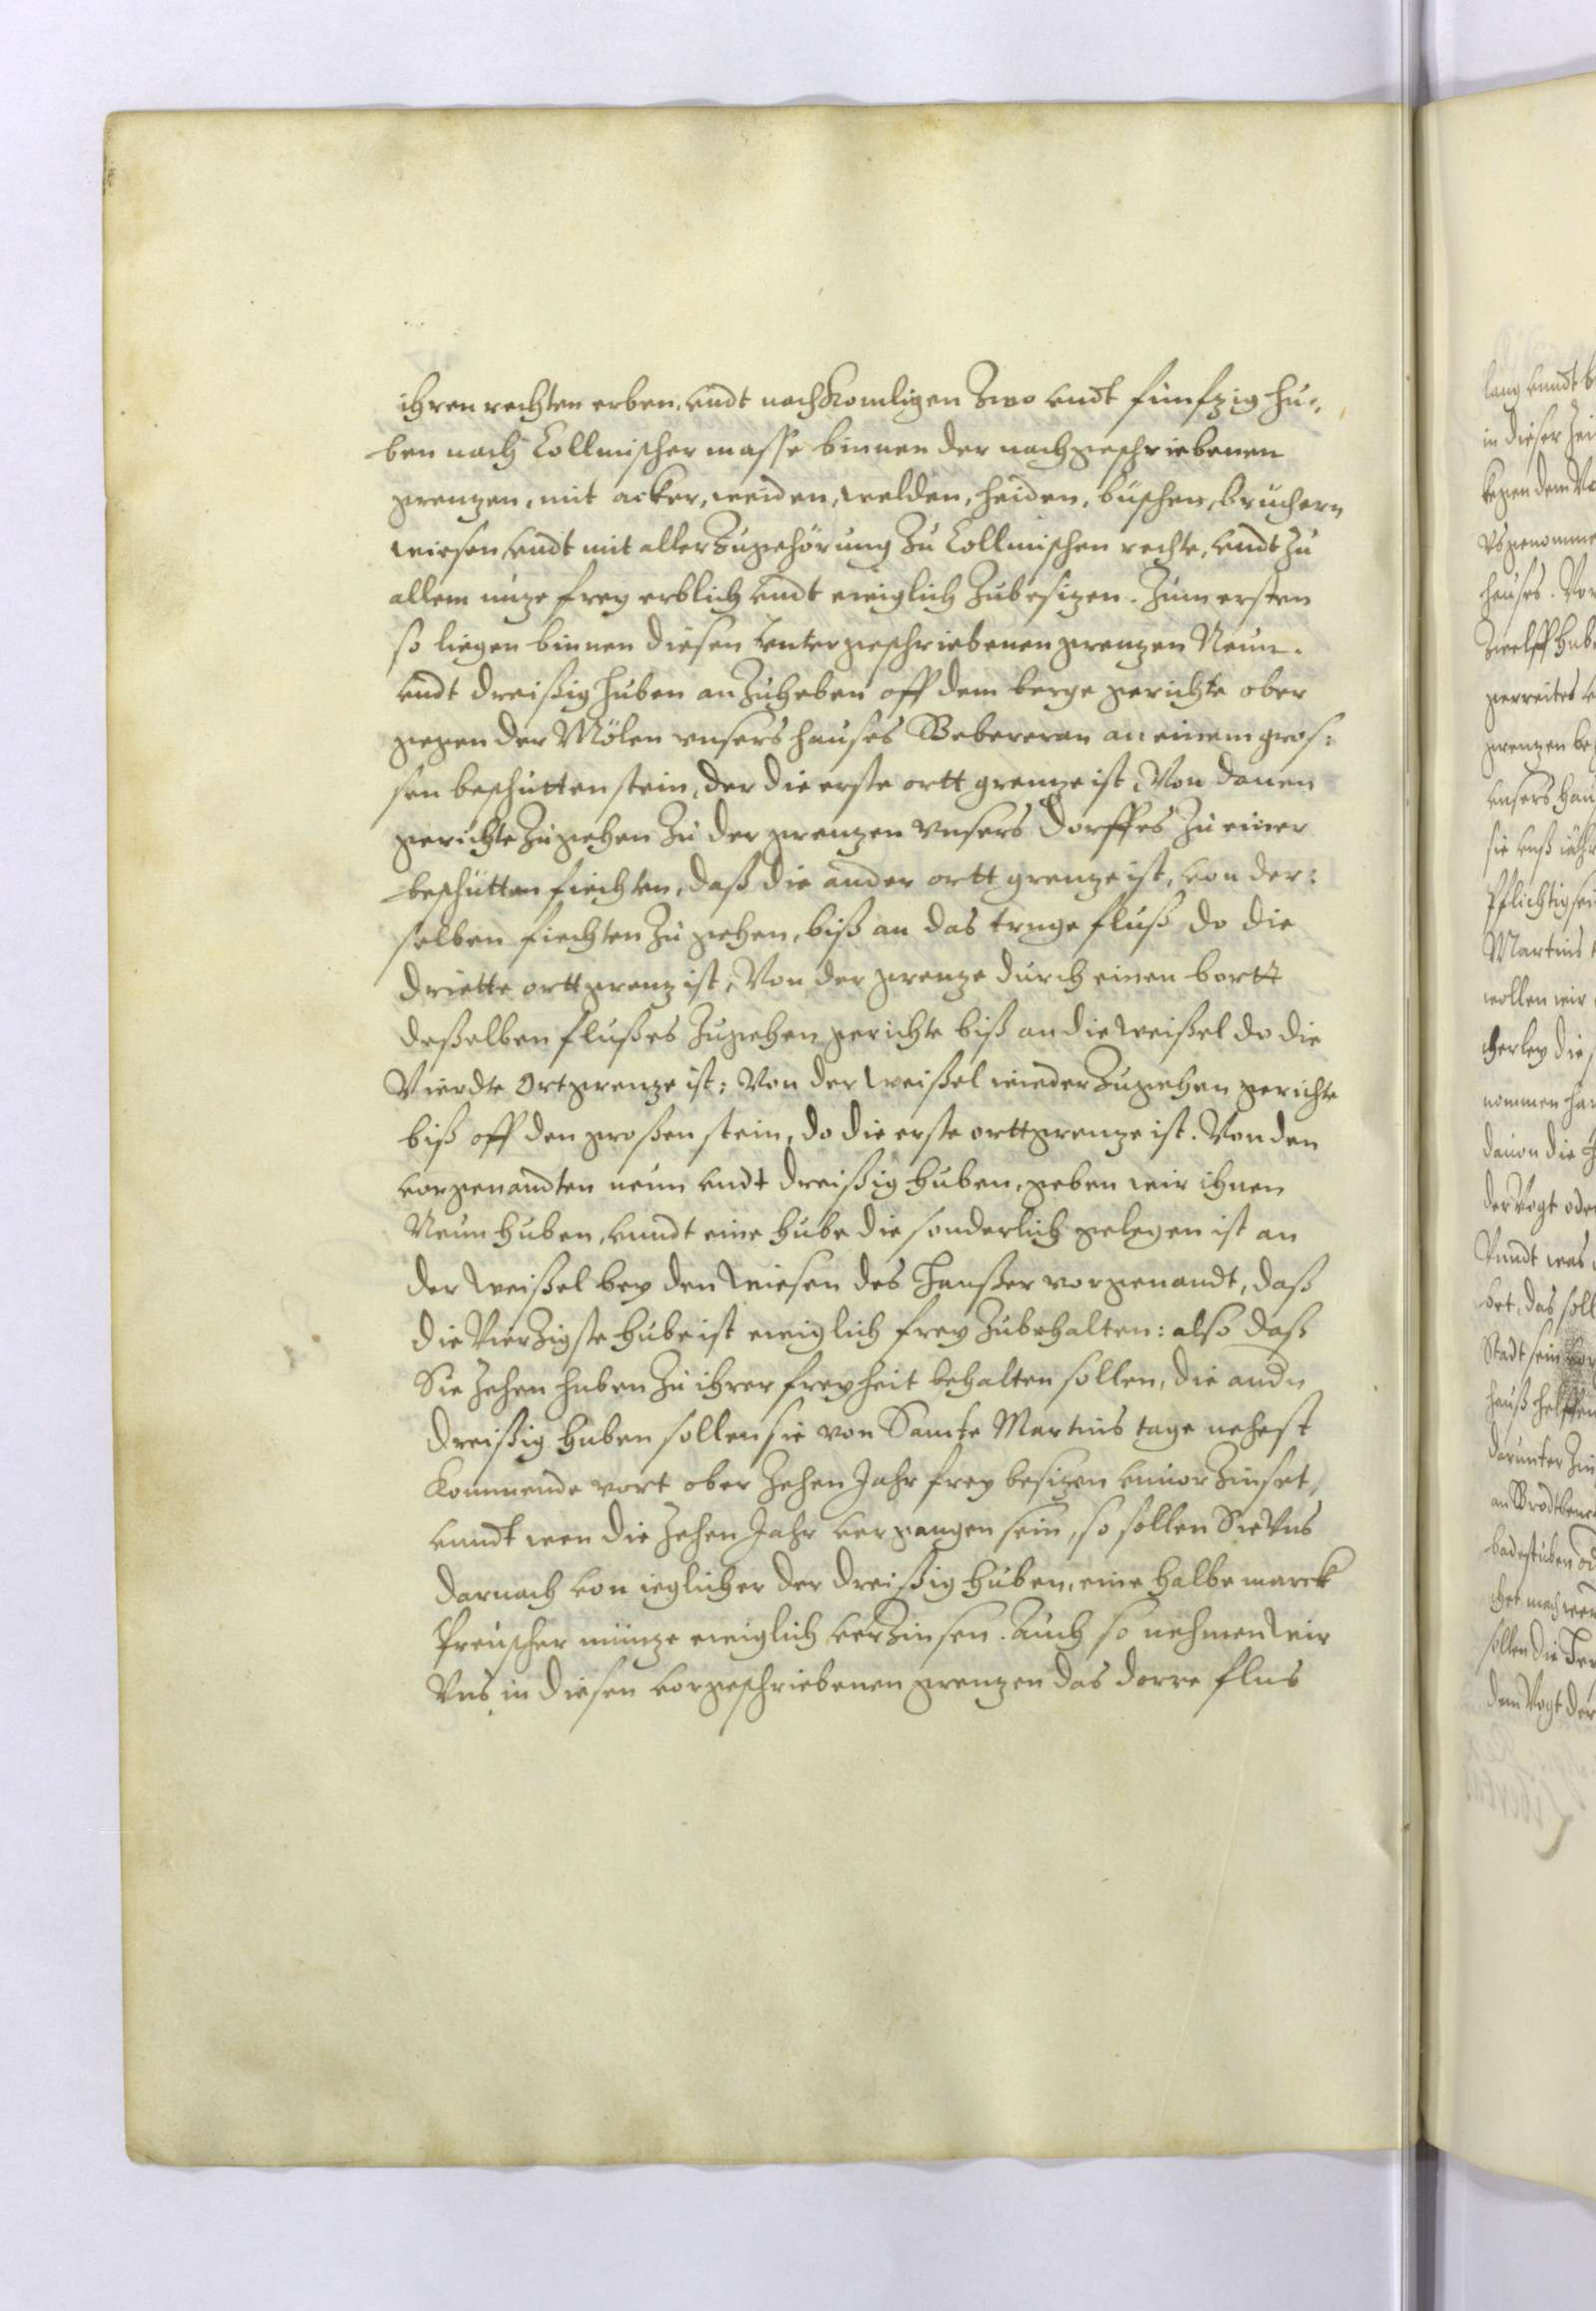 ihren rechten erben, vndt nachkomligen Zwo vndt funfzig hu-
ben nach Collmischer masse binnen der nachgeschriebenen
grenzen, mit acker, weiden, welden, heiden, büschen, brüchern
wiesen vndt mit aller Zugehörung Zu Collmischen rechte, vndt Zu
allem nuze frey erblich vndt ewiglich Zubesizen. Zum ersten
so liegen binnen diesen vntergeschriebenen grenzen Neun-
vndt dreißig huben an Zuheben off dem berge gerichte ober
gegen der Mölen vnsers hauses Bebereran an einem gros:
sen beschutten stein, der die erste ortt grenze ist, Von danen
gerichte Zu gehen Zu der grenzen vnsers Dorffes Zu einer
beschütten fiechten, daß die ander ortt grenze ist, von der:
selben fiechten Zu gehen, biß an das truge fluß do die
driette ortt grenz ist, Von der grenze durch einen bortt
deßelben flußes Zugehen gerichte biß an die weißel do die
Vierdte Ortgrenze ist: Von der weißel wieder Zugehen gerichte
biß off den großen stein, do die erste orttgrenze ist. Von den
vorgenandten neun vndt dreißig huben, geben wir ihnen
Neun huben, vnndt eine hube die sonderlich gelegen ist an
der weißel bey den wiesen des Haußer vorgenandt, daß
die Vierzigste hube ist ewiglich frey Zubehalten: also daß
Sie Zehen huben Zu ihrer freyheit behalten sollen, die andn
dreißig huben sollen sie von Sancte Martins tage nehest
Kommende vort ober Zehen Jahr frey besizen vnuorZinset,
vnndt wen die Zehen Jahr vergangen sein, so sollen Sie Vns
darnach von ieglicher der dreißig huben, eine halbe marck
Preuscher münze ewiglich verZinsen. Auch so nehmen wir
Vns in diesen vorgeschriebenen grenzen das dorre flus